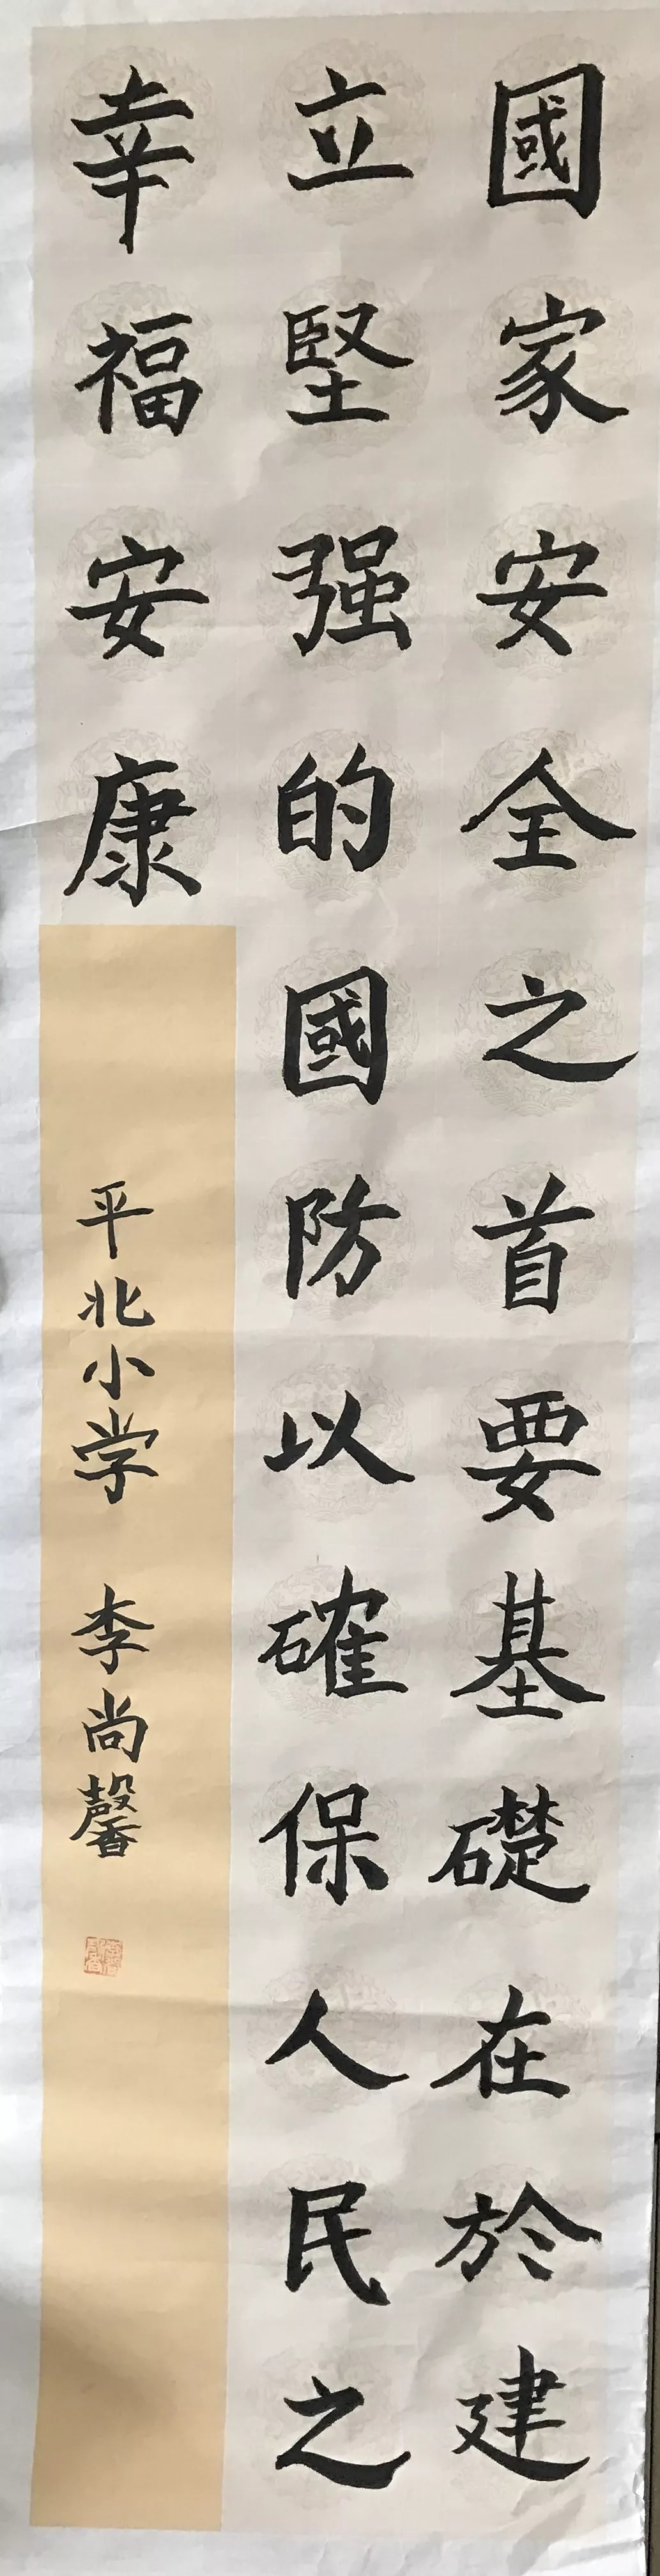 國家安全之首要基礎在於建
立堅强的國防以確保人民之
幸福安康
平北小学 李尚馨